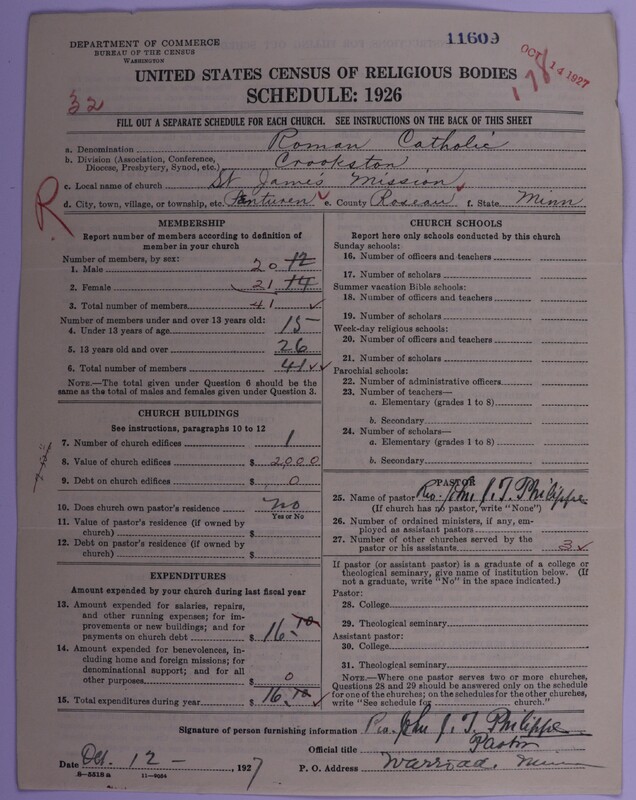 DEPARTMENT OF COMMERCE
BUREAU OF THE CENSUS
WASHINGTON
11609
OCT 14 1927
178
UNITED STATES CENSUS OF RELIGIOUS BODIES
SCHEDULE: 1926
32
FILL OUT A SEPARATE SCHEDULE FOR EACH CHURCH. SEE INSTRUCTIONS ON THE BACK OF THIS SHEET
a. Denomination Roman Catholic
b. Division (Association, Conference, Diocese, Presbytery, Synod, etc.) Crookston
c. Local name of church St James Mission
R
d. City, town, village, or township, etc. e. County Roseau f. State Minn
MEMBERSHIP
Report number of members according to definition of
member in your church
Number of members, by sex:
1. Male 20 12
2. Female 21 14
3. Total number of members 41
Number of members under and over 13 years old:
4. Under 13 years of age 15
5. 13 years old and over 26
6. Total number of members 41
NOTE.—The total given under Question 6 should be
same as the total of males and females given under Question 3.
CHURCH BUILDINGS
See instructions, paragraphs 10 to 12
7. Number of church edifices 1
8. Value of church edifices $ 2000
9. Debt on church edifices $ 0
10. Does church own pastor's residence no
Yes or No
11. Value of pastor's residence (if owned by
church) $
12. Debt on pastor's residence (if owned by
church) $
EXPENDITURES
Amount expended by your church during last fiscal year
13. Amount expended for salaries, repairs,
and other running expenses; for im-
provements or new buildings; and for
payments on church debt $ 16
14. Amount expended for benevolences, in-
cluding home and foreign missions; for
denominational support; and for all
other purposes $ 0
15. Total expenditures during year $ 16
CHURCH SCHOOLS
Report here only schools conducted by this church
Sunday schools:
16. Number of officers and teachers
17. Number of scholars
Summer vacation Bible schools:
18. Number of officers and teachers
19. Number of scholars
Week-day religious schools:
20. Number of officers and teachers
21. Number of scholars
Parochial schools:
22. Number of administrative officers
23. Number of teachers—
a. Elementary (grades 1 to 8)
b. Secondary
24. Number of scholars—
a. Elementary (grades 1 to 8)
b. Secondary
PASTOR
25. Name of pastor Rev. John J. T. Philippe
(If church has no pastor, write "None")
26. Number of ordained ministers, if any, em-
ployed as assistant pastors
27. Number of other churches served by the
pastor or his assistants 3
If pastor (or assistant pastor) is a graduate of a college or
theological seminary, give name of institution below. (If
not a graduate, write "No" in the space indicated.)
Pastor:
28. College
29. Theological seminary
Assistant pastor:
30. College
31. Theological seminary
NOTE.—Where one pastor serves two or more churches,
Questions 28 and 29 should be answered only on the schedule
for one of the churches; on the schedules for the other churches,
write "See schedule for church."
Signature of person furnishing information Rev. John J. T. Philippe
Official title Pastor
Date Oct. 12 - , 1927 P. O. Address Warroad, Minn
8-5518a 11-9254